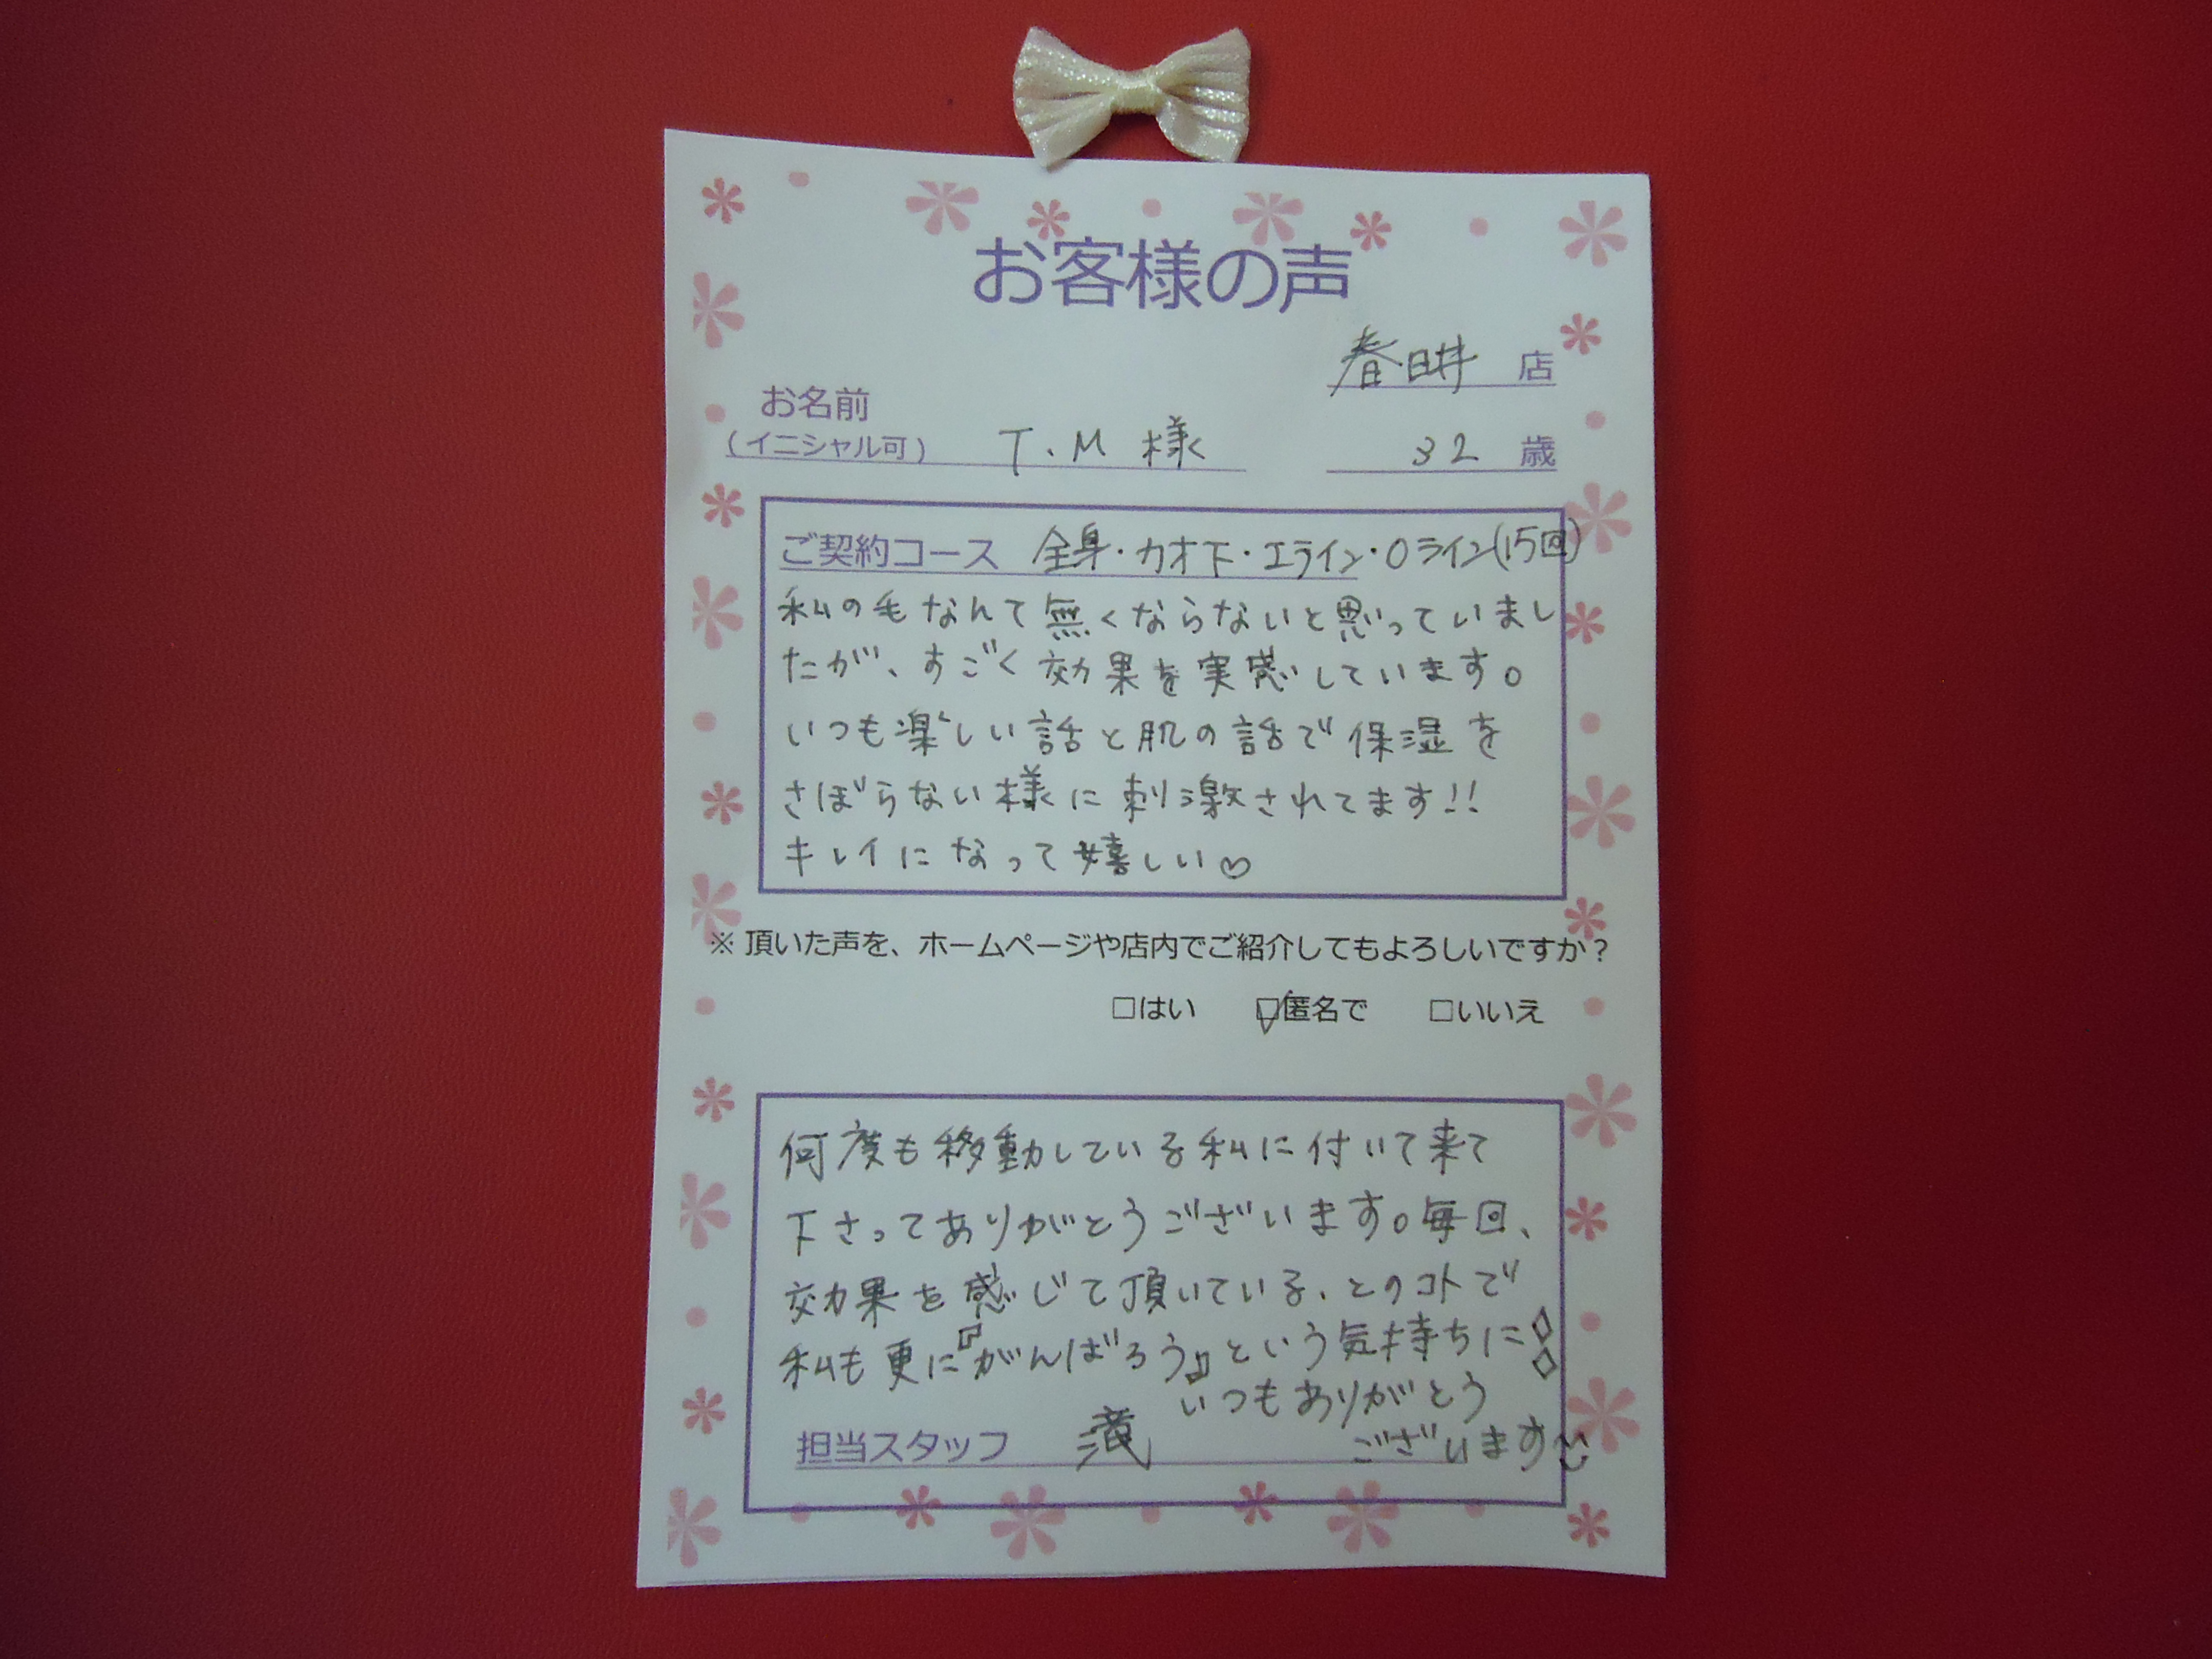 お客様の声
春日井 店
お名前
(イニシャル可) T.M 様 32 歳
ご契約コース 全身・カオ下・エライン・Oライン(15回)
私の毛なんて無くならないと思っていまし
たが、すごく効果を実感しています。
いつも楽しい話と肌の話で保湿を
さぼらない様に刺激されてます!!
キレイになって嬉しい♡
※頂いた声を、ホームページや店内でご紹介してもよろしいですか？
□はい ☑匿名で □いいえ
何度も移動している私に付いて来て
下さってありがとうございます。毎回、
効果を感じて頂いている、とのコトで
私も更に『がんばろう』という気持ちに
いつもありがとう
担当スタッフ 滝 ございます